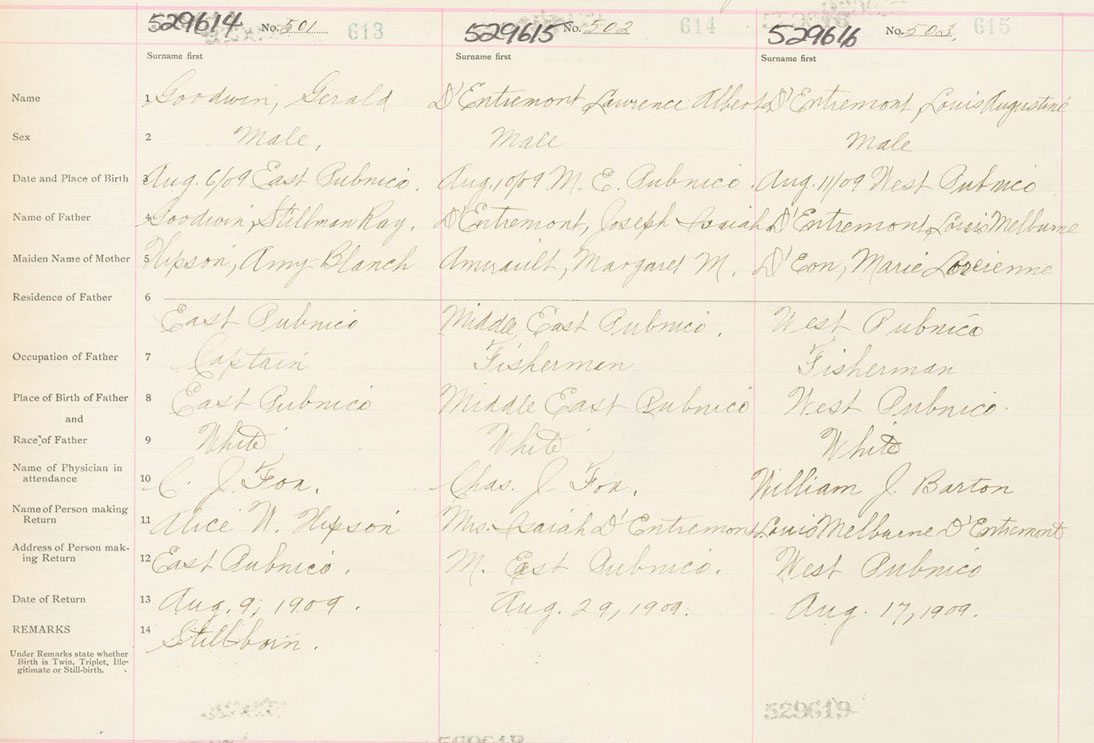 529614 No. 501 613
529615 No. 502 614
529616 No. 503. 615
Surname first Surname first Surname first
Name 1 Goodwin, Gerald D'Entremont, Lawrence Albert D'Entremont, Louis Augustine
Sex 2 Male, Male Male
Date and Place of Birth 3 Aug. 6/09 East Pubnico. Aug. 10/09 M. E. Pubnico. Aug. 11/09 West Pubnico
Name of Father 4 Goodwin, Stillman Ray. D'Entremont, Joseph Isaiah D'Entremont, Louis Melburne
Maiden Name of Mother 5 Hipson, Amy Blanch Amirault, Margaret M. D'Eon, Marie
Residence of Father 6
East Pubnico Middle East Pubnico. West Pubnico
Occupation of Father 7 Captain Fisherman Fisherman
Place of Birth of Father 8 East Pubnico Middle East Pubnico West Pubnico.
and
Race of Father 9 White White White
Name of Physician in
attendance 10 C. J. Fox. Chas. J. Fox. William J. Barton
Name of Person making
Return 11 Alice W. Hipson Mrs. Isaiah D'Entremont Louis Melburne D'Entremont
Address of Person mak-
ing Return 12 East Pubnico. M. East Pubnico. West Pubnico
Date of Return 13 Aug. 9, 1909. Aug. 29, 1909. Aug. 17, 1909.
REMARKS 14 Stillborn.
Under Remarks state whether
Birth is Twin, Triplet, Ille-
gitimate or Still-birth.
529619